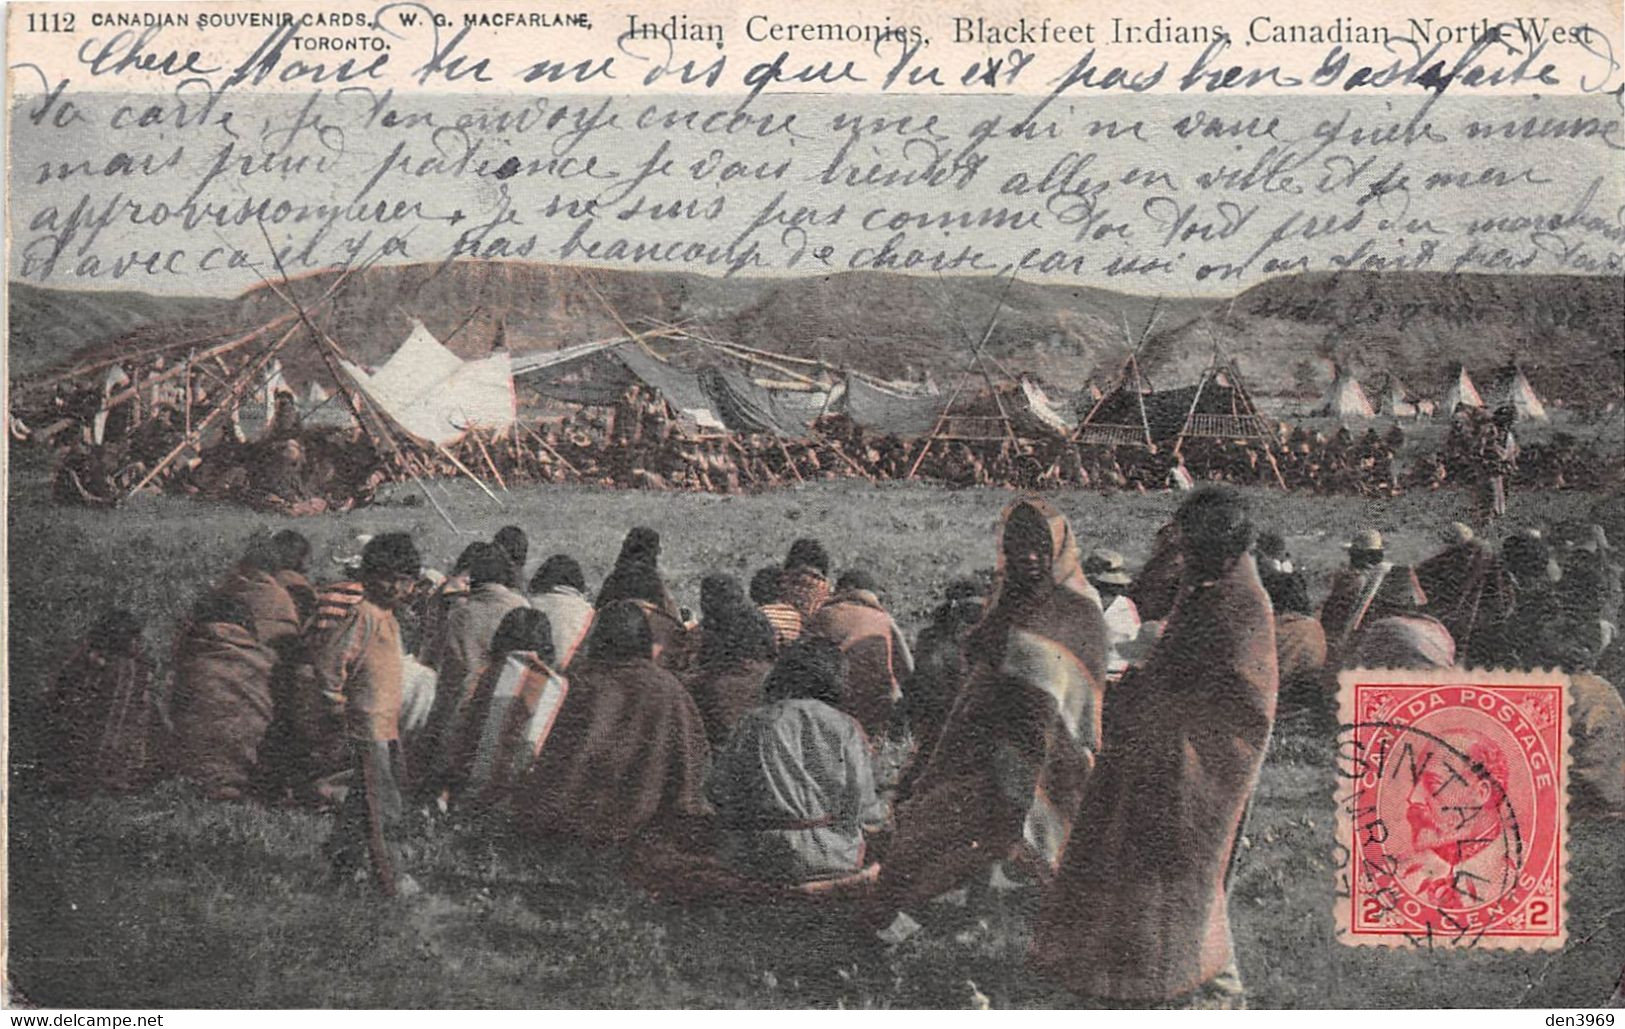 1112 CANADIAN SOUVENIR CARDS. W. G. MACFARLANE, TORONTO.
Indian Ceremonies, Blackfeet Indians, Canadian North-West
Chere Marie tu me dis que tu est pas bien satisfaite de
ta carte, je ten envoye encore une qui ne vaut guère mieux
mais prend patience je vais bientot allez en ville et je men
approvisionnerer, je ne suis pas comme toi tout pres du marchand
et avec ca il y a pas beaucoup de choise, car ici on en fait pas
CANADA POSTAGE
2 TWO CENTS 2
SINTALUTA
MR 20
den3969